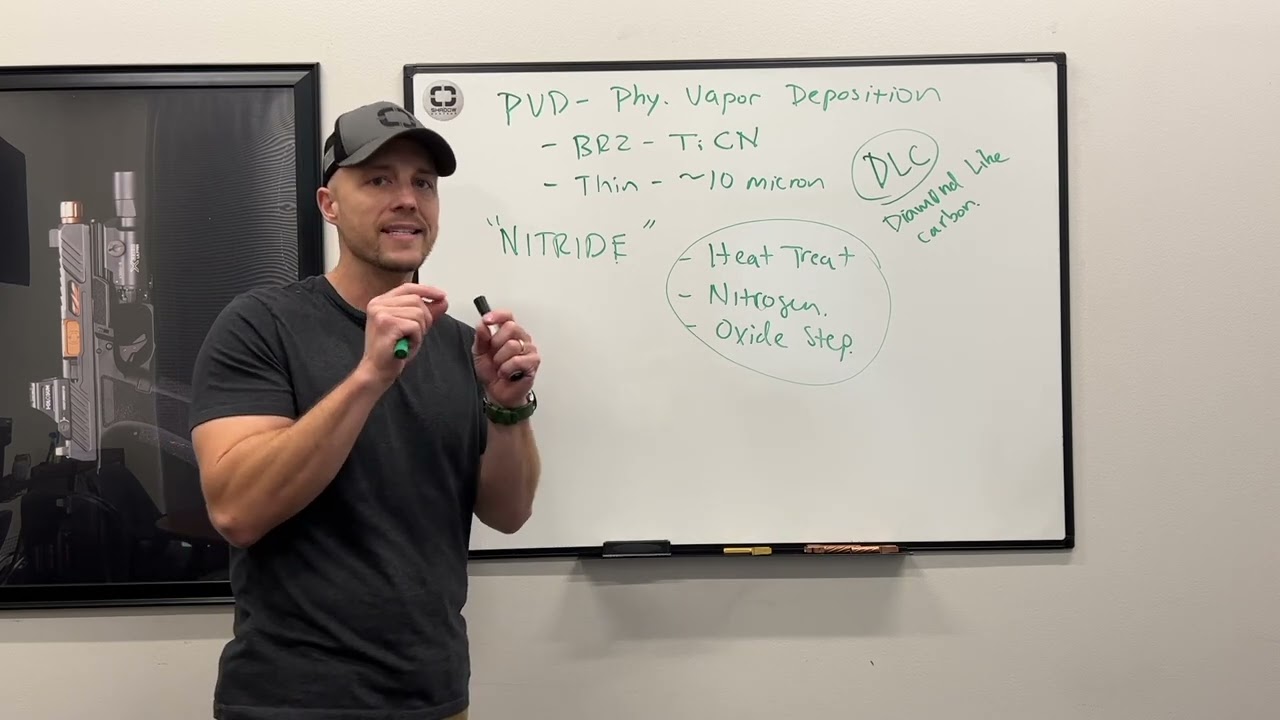 SHADOW
SYSTEMS
PVD- Phy. Vapor Deposition
- BRZ - TiCN
- Thin - ~10 micron
DLC
Diamond Like
carbon.
"NITRIDE"
- Heat Treat
- Nitrogen.
- Oxide Step.